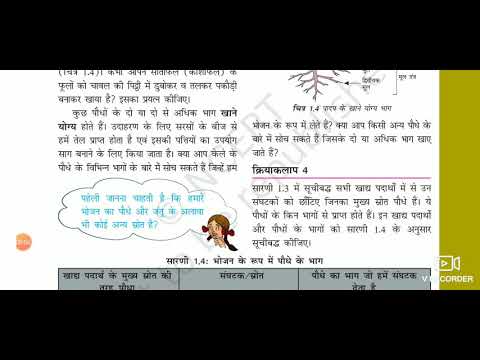 (चित्र 1.4)। कभी आपने सीताफल (काशीफल) के
फूलों को चावल की पिट्ठी में डुबोकर व तलकर पकौड़ी
बनाकर खाया है? इसका प्रयत्न कीजिए।
कुछ पौधों के दो या दो से अधिक भाग खाने
योग्य होते हैं। उदाहरण के लिए सरसों के बीज से
हमें तेल प्राप्त होता है एवं इसकी पत्तियों का उपयोग
साग बनाने के लिए किया जाता है। क्या आप केले के
पौधे के विभिन्न भागों के बारे में सोच सकते हैं जिन्हें हम
पहेली जानना चाहती है कि हमारे
भोजन का पौधे और जंतु के अलावा
भी कोई अन्य स्रोत है?
द्वितीयक
मूल
मूल तंत्र
चित्र 1.4 पादप के खाने योग्य भाग
भोजन के रूप में लेते हैं? क्या आप किसी अन्य पौधे के
बारे में सोच सकते हैं जिसके दो या अधिक भाग खाए
जाते हैं?
क्रियाकलाप 4
सारणी 1.3 में सूचीबद्ध सभी खाद्य पदार्थों में से उन
संघटकों को छाँटिए जिनका मुख्य स्रोत पौधे हैं। ये
पौधों के किन भागों से प्राप्त होते हैं। इन खाद्य पदार्थों
और पौधों के भागों को सारणी 1.4 के अनुसार
सूचीबद्ध कीजिए।
सारणी 1.4: भोजन के रूप में पौधे के भाग
खाद्य पदार्थ के मुख्य स्रोत की
तरह पौधा
संघटक/स्रोत
पौधे का भाग जो हमें संघटक
देता है
V RECORDER